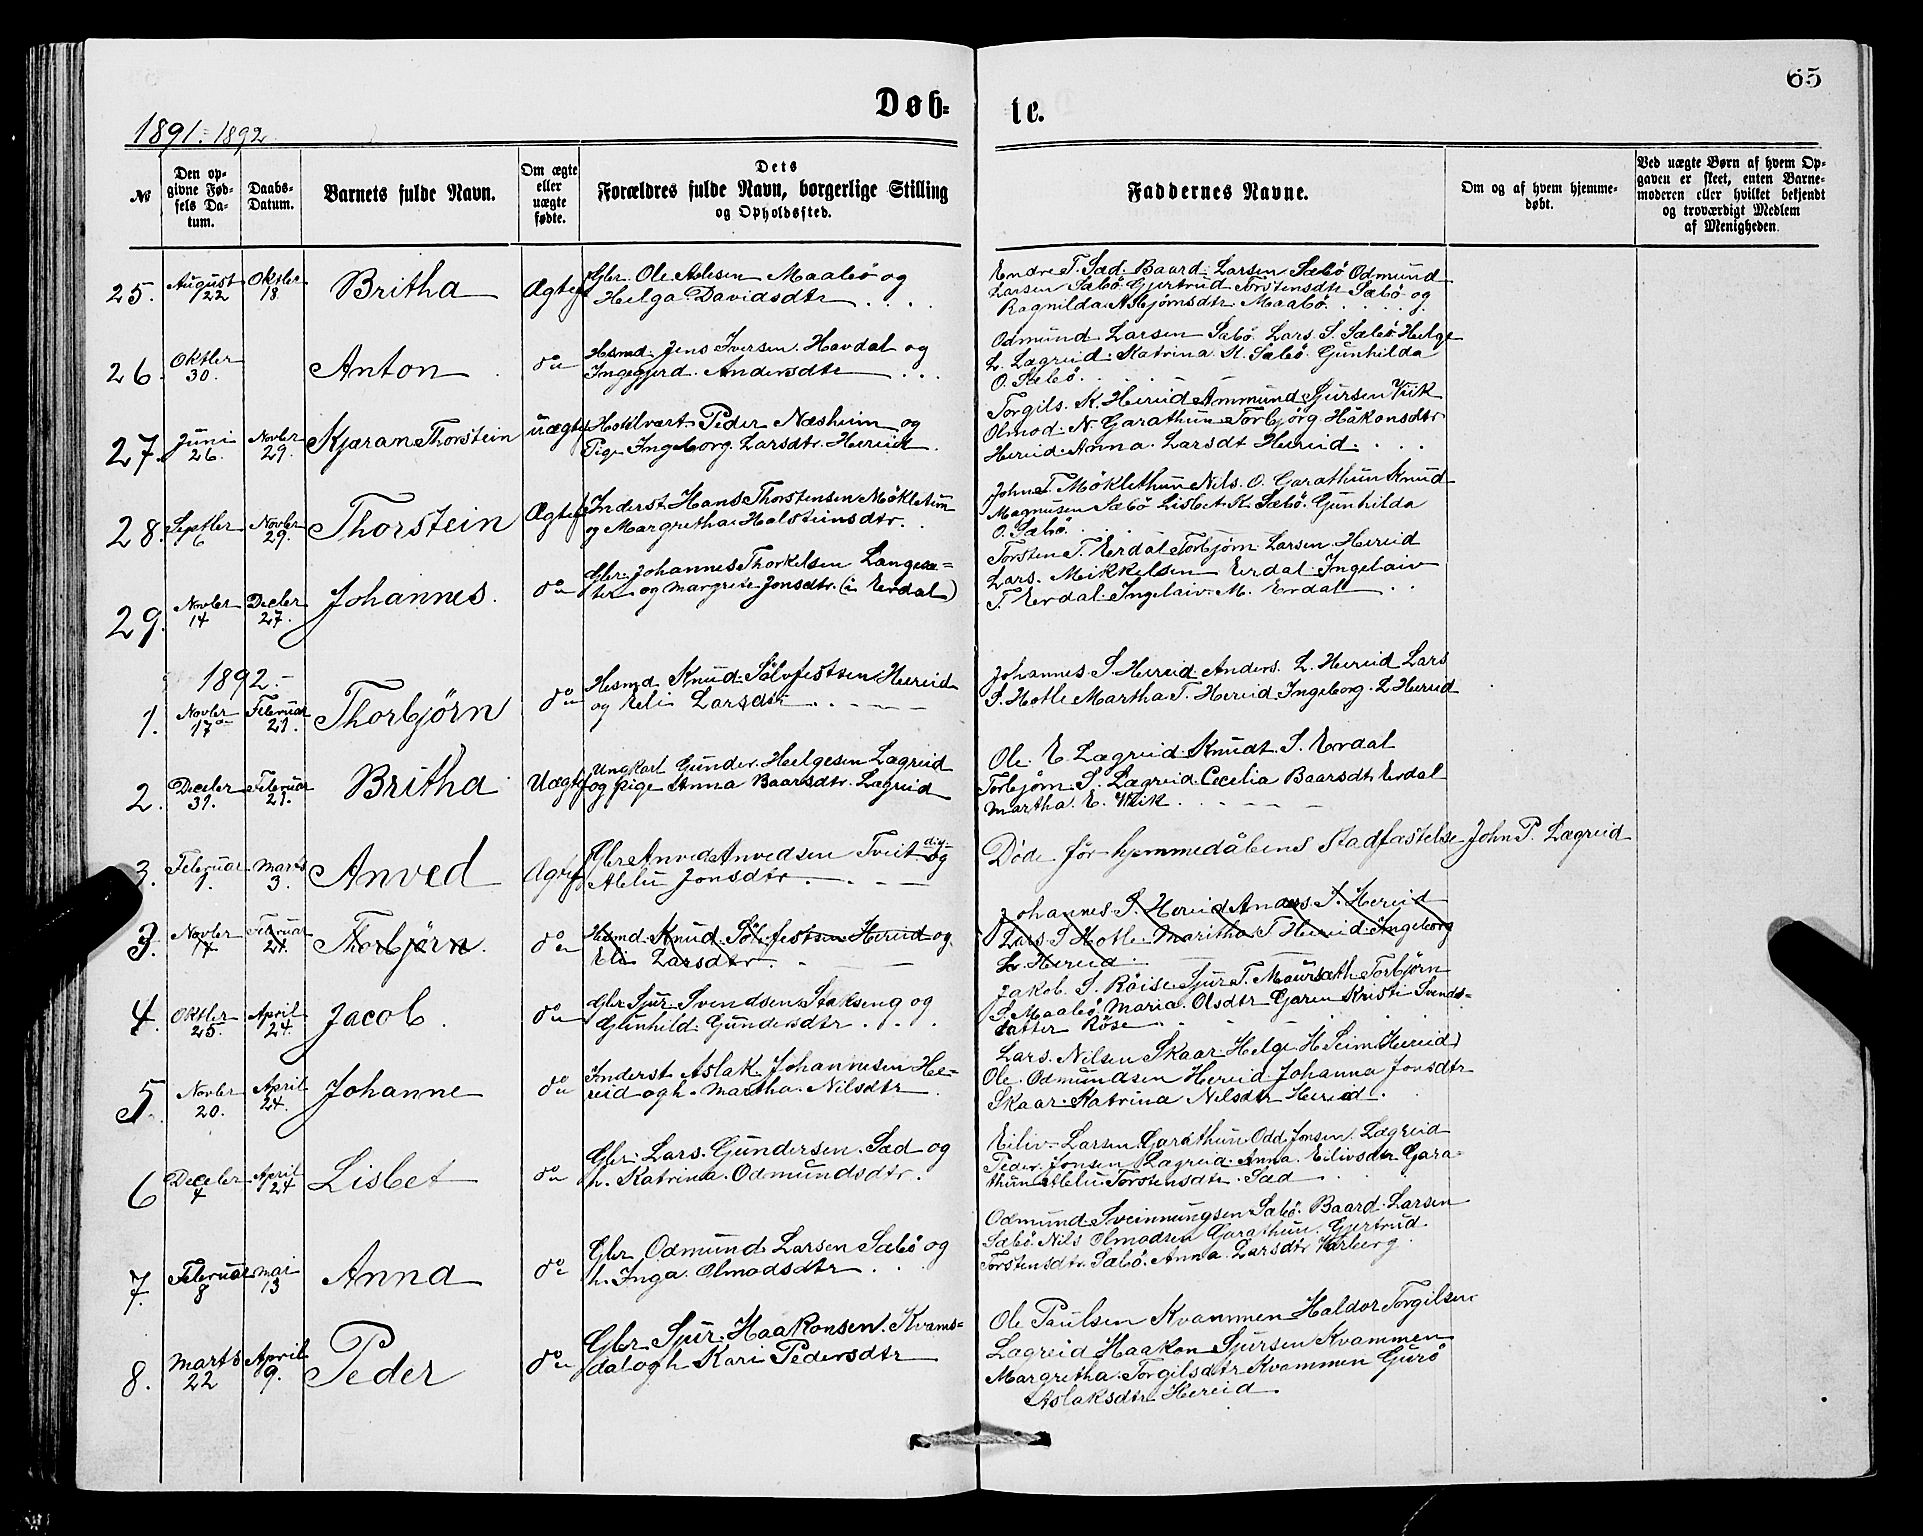 65
Døb-
te.
1891-1892
№
Den op-
givne Fød-
sels Da-
tum.
Daabs-
Datum.
Barnets fulde Navn.
Om ægte
eller
uægte
fødte.
Dets
Forældres fulde Navn, borgerlige Stilling
og Opholdssted.
Faddernes Navne.
Om og af hvem hjemme-
døbt.
Ved uægte Børn af hvem Op-
gaven er skeet, enten Barne-
moderen eller hvilket bekjendt
og troværdigt Medlem
af Menigheden.
25.
August
22
Oktbr
18
Britha
Ægtef
Gbr. Ole Aslesen Maabö og
Helga Davidsdtr
Endre T. Sæd. Baard Larsen Sæbö Odmund
Larsen Säbö Gjertrud Torstensdtr Säbö og
Ragnilda Asbjörnsdtr Maabö.
26.
Oktbr
30.
Anton
do
Hsmd. Jens Iversen Havdal og
Ingegjerd Andersdtr
Odmund Larsen Säbö Lars S. Sæbö Helge
L. Lægreid. Katrina K. Sæbö Gunhilda
O. Sæbö.
27.
Juni
26.
Novbr
29.
Kjæran Thorstein
uægte
Peder Næsheim og
Pige Ingeborg Larsdtr. Hereid
Torgils K. Hereid Ammund Sjursen Viik
Olmod N. Garathun Torbjörg Håkonsdtr
Hereid Anna Larsdt Hereid
28.
Septbr
6
Novbr
29.
Thorstein
Ægtef
Inderst Hans Thorstensen Mökletun
og Margretha Halsteinsdtr.
John T Möklethun Nils O. Garathun Knud
Magnusen Sæbö Lisbet K. Sæbö. Gunhilda
O. Sæbö
29.
Novbr
14
Decbr
27.
Johannes
do
Gbr. Johannes Thorkelsen Langesæ-
ter og Margrete Jonsdtr. (i Erdal)
Torsten T. Erdal Torbjørn Larsen Hereid
Lars Mikkelsen Erdal Ingelaiv
T. Erdal. Ingelaiv M. Erdal
1892.-
1.
Novbr
17
Februar
21.
Thorbjörn
do
Hsmd Knud Sölvfestsen Hereid
og Eli Larsdtr
Johannes S Hereid Anders L. Hereid Lars
S. Hotle Martha T. Hereid Ingeborg L Hereid
2.
Decebr
31.
Februar
21.
Britha
Uægte
Ungkarl Gunder Helgesen Lægreid
og pige Anna Baarsdtr. Lægreid
Ole E. Lægreid Knudt S. Erdal
Torbjörn S. Lægreid Cecelia Baarsdt Erdal
Martha E. Viik
3.
Februar
1.
Marts
3.
Anved
Ægtf
Gbr Anved Anvedsen Tveit og
Jonsdtr
Döde för hjemmedåbens Stadfæstelse John P. Lægreid
3.
Novbr
17
Februar
21.
Thorbjörn.
do
Hsmd. Knud Sölvfestsen Hereid og
Eli Larsdtr.
Johannes S. Hereid Anders S. Hereid
Lars S Hotle Maritha T Hereid Ingeborg
L. Hereid
4.
Oktbr
25.
April
24.
Jacob.
do
Gbr. Sjur Svendsen Stakseng og
Gunhild Gundersdtr
Jakob S. Röise Sjur T. Maursæth Torbjörn
S. Maabö Maria Olsdtr Garen Kristi Svends-
datter Röse
5.
Novbr
20.
April
24.
Johanne
do
Inderst Aslak Johannesen He-
reid og h. Martha Nilsdtr
Lars Nilsen Skaar Helge H Seim (Hereid)
Ole Odmundsen Hereid Johanna Jonsdtr
Skaar. Katrina Nilsdtr Hereid.
6
Decebr
4
April
24
Lisbet
do
Gbr. Lars Gundersen Sæd og
h. Katrina Odmundsdtr.
Eiliv Larsen Garathun Odd Jonsen Lægreid
Peder Jonsen Lægreid Anna Eilivsdtr Gara-
thun Torstensdtr Sæd
7.
Februar
8
Mai
13
Anna
do
Gbr Odmund Larsen Sæbö og
h. Inga Olmodsdtr
Odmund Sveinnungsen Sæbö. Baard Larsen
Sæbö Nils Olmodsen Garathun Gjertrud
Torstensdtr Sæbö. Anna Larsdtr Varberg
8.
Marts
22
April
9.
Peder
do
Gbr Sjur Haakonsen Kvams-
dal og h Kari Pedersdtr
Ole Paulsen Kvammen Haldor Torgilsen
Lægreid Haakon Sjursen Kvammen
Margretha Torgilsdtr Kvammen Gurö
Aslaksdtr Hereid